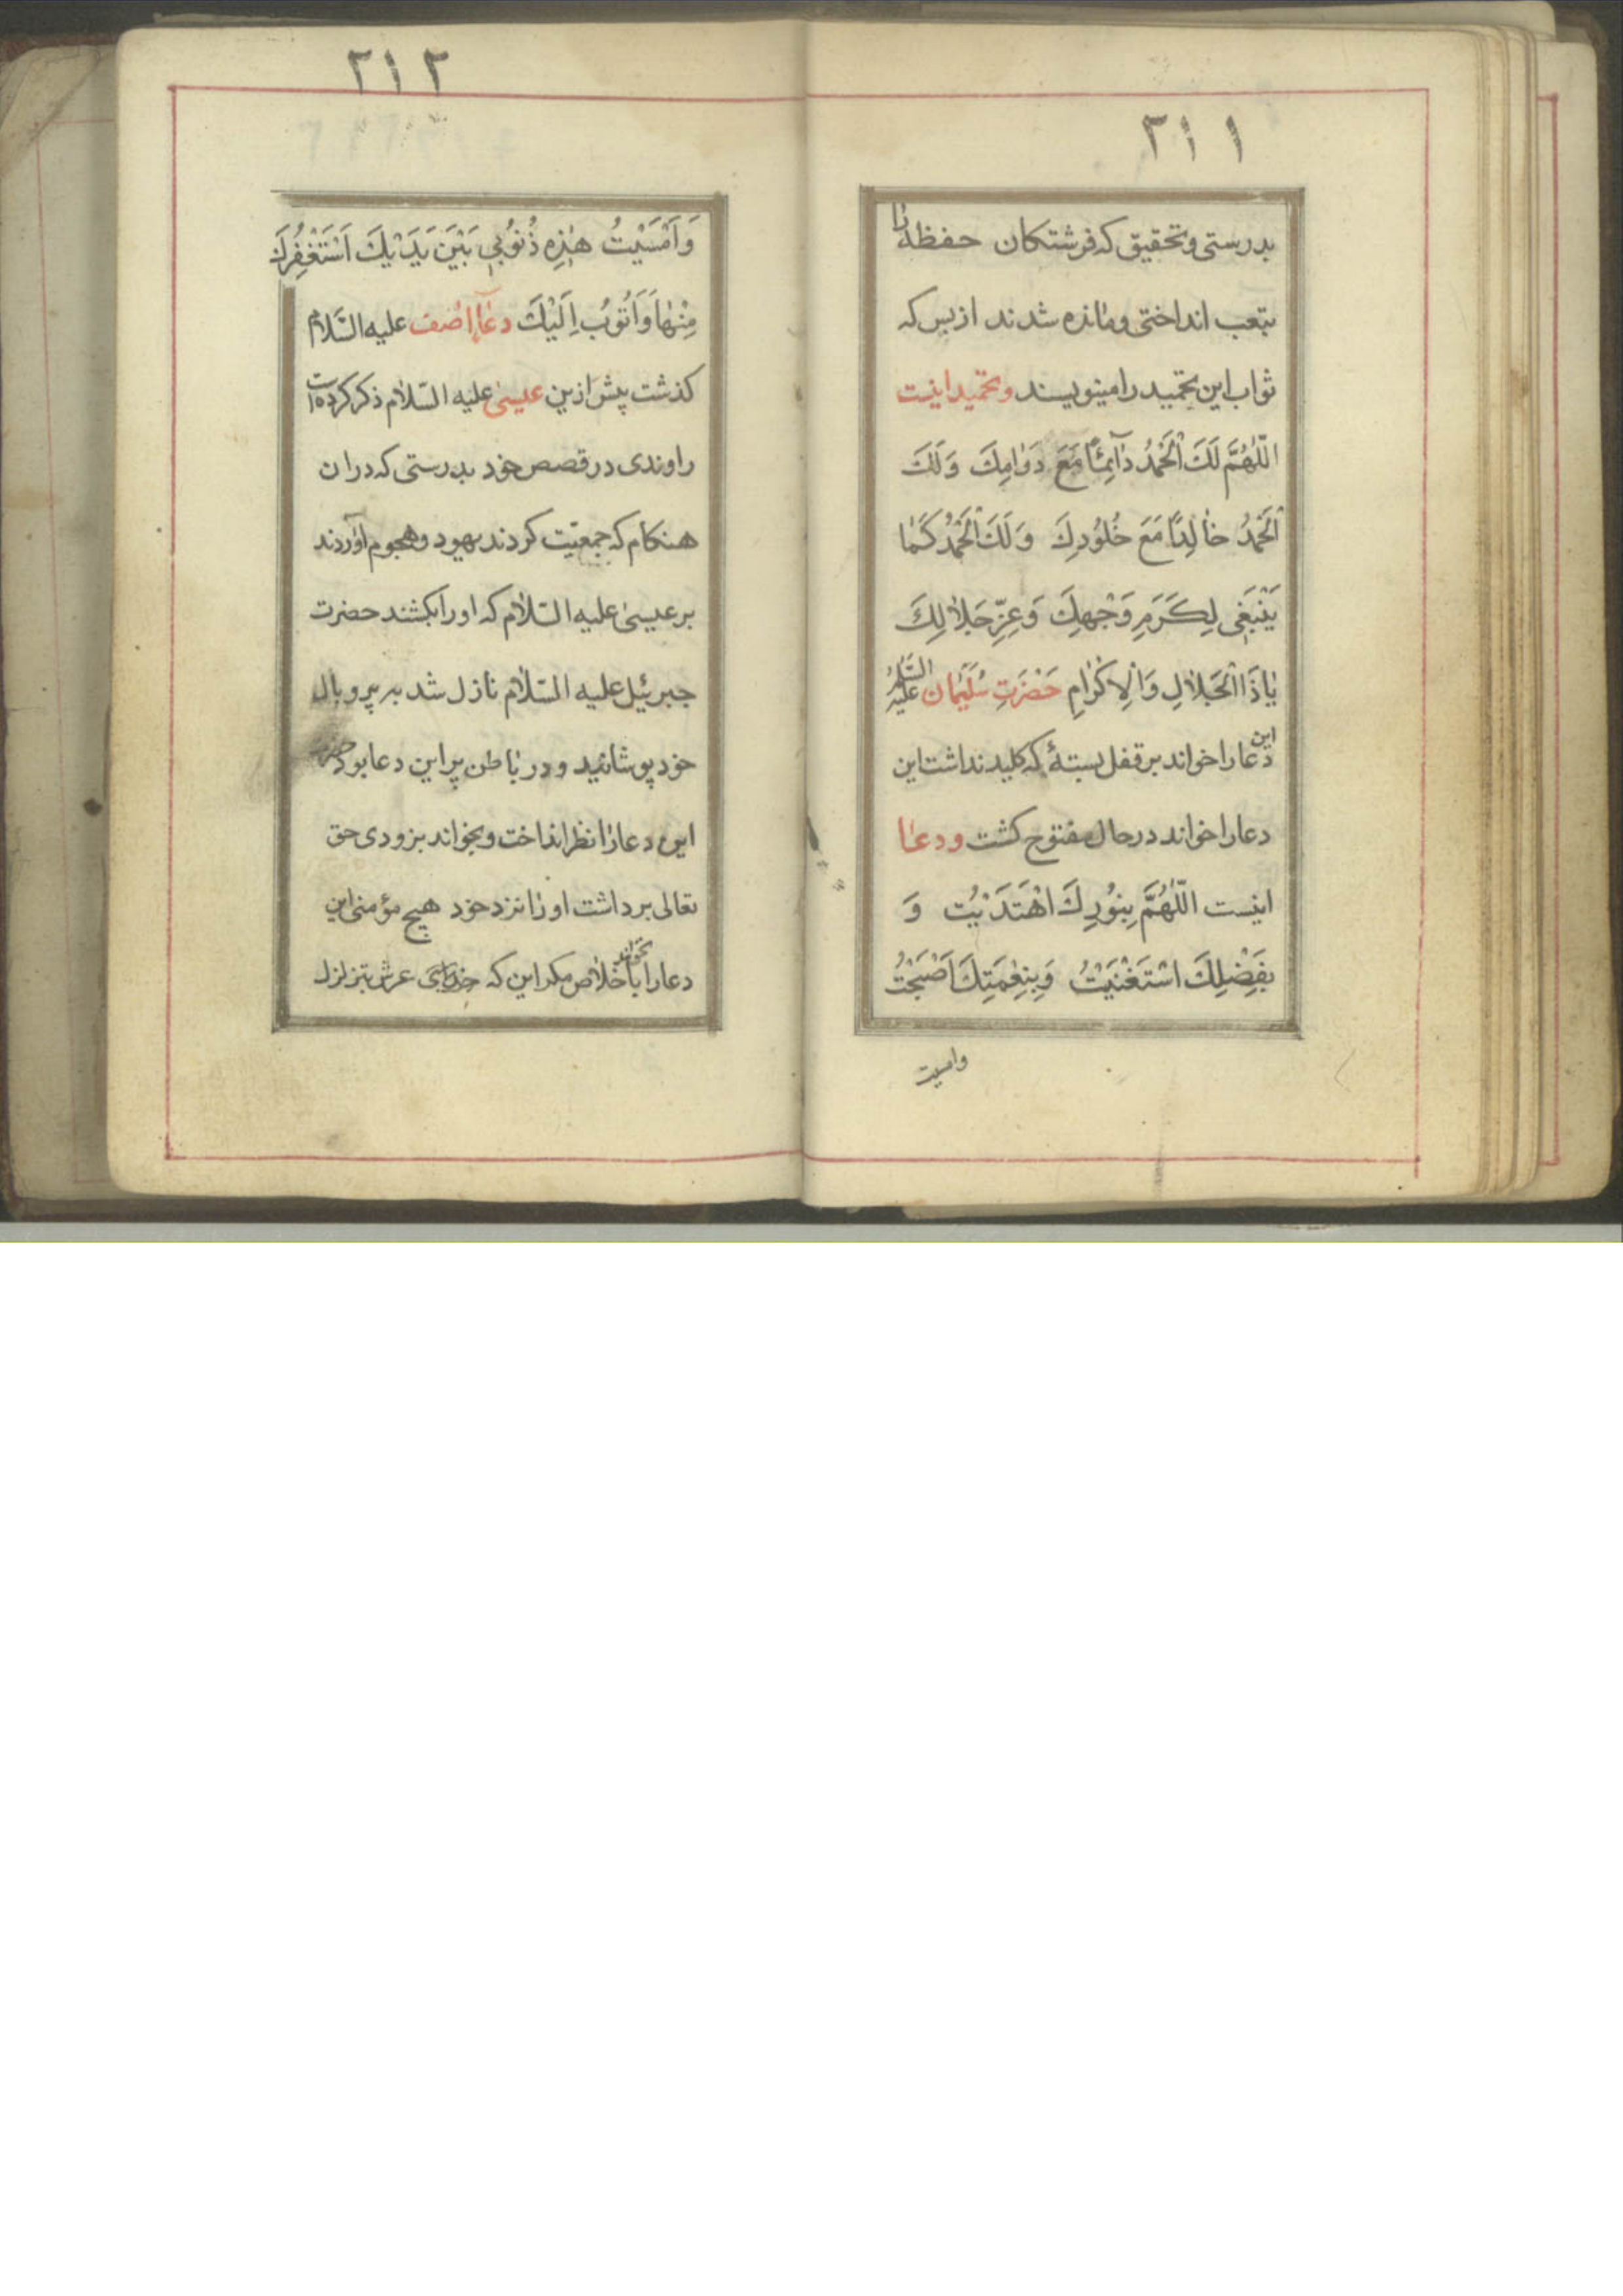 ۲۱۱
بدرستی وتحقیق که فرشتکان حفظه را
بتعب انداختی ومانده شدند ازبس که
ثواب این تحمید را مینویسند وتحمید اینست
اَللّٰهُمَّ لَكَ الْحَمْدُ دٰآئِمًا مَعَ دَوٰامِكَ وَلَكَ
الْحَمْدُ خٰالِدًا مَعَ خُلُودِكَ وَلَكَ الْحَمْدُ كَمٰا
يَنْبَغِى لِكَرَمِ وَجْهِكَ وَعِزِّ جَلاٰلِكَ
يٰاذَا الْجَلاٰلِ وَالْاِكْرٰامِ حَضْرَتِ سُلَيْمٰان عليه السّلم
این دعا را خواند برقفل بستهٔ که کلید نداشت این
دعا را خواند درحال مفتوح کشت ودعا
اینست اللّٰهُمَّ بِنُورِكَ اهْتَدَيْتُ وَ
بِفَضْلِكَ اسْتَغْنَيْتُ وَبِنِعْمَتِكَ اَصْبَحْتُ
وامسیت
۲۱۲
وَاَمْسَيْتُ هٰذِهِ ذُنُوبِي بَيْنَ يَدَيْكَ اَسْتَغْفِرُكَ
مِنْهٰا وَاَتُوبُ اِلَيْكَ دعآء اصف علیه السّلام
کذشت پیش ازین عیسیٰ علیه السّلام ذکر کرده است
راوندی در قصص خود بدرستی که دران
هنکام که جمعیّت کردند یهود وهجوم آوردند
برعیسیٰ علیه السّلام که اورا بکشند حضرت
جبرئیل علیه السّلام نازل شد به پروبال
خود پوشانید ودر باطن پر این دعا بود
این دعا را نظر انداخت وبخواند بزودی حق
تعالی برداشت اورا نزد خود هیچ مؤمنی این
دعا را باخلاص بخواند مکر این که عرش بتزلزل